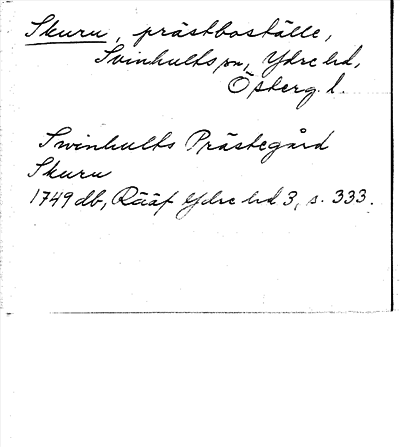 Skuru, prästboställe,
Svinhults sn, Ydre hd,
Österg. l.
Swinhults Prästegård
Skuru
1749 db, Rääf Ydre hd 3, s. 333.